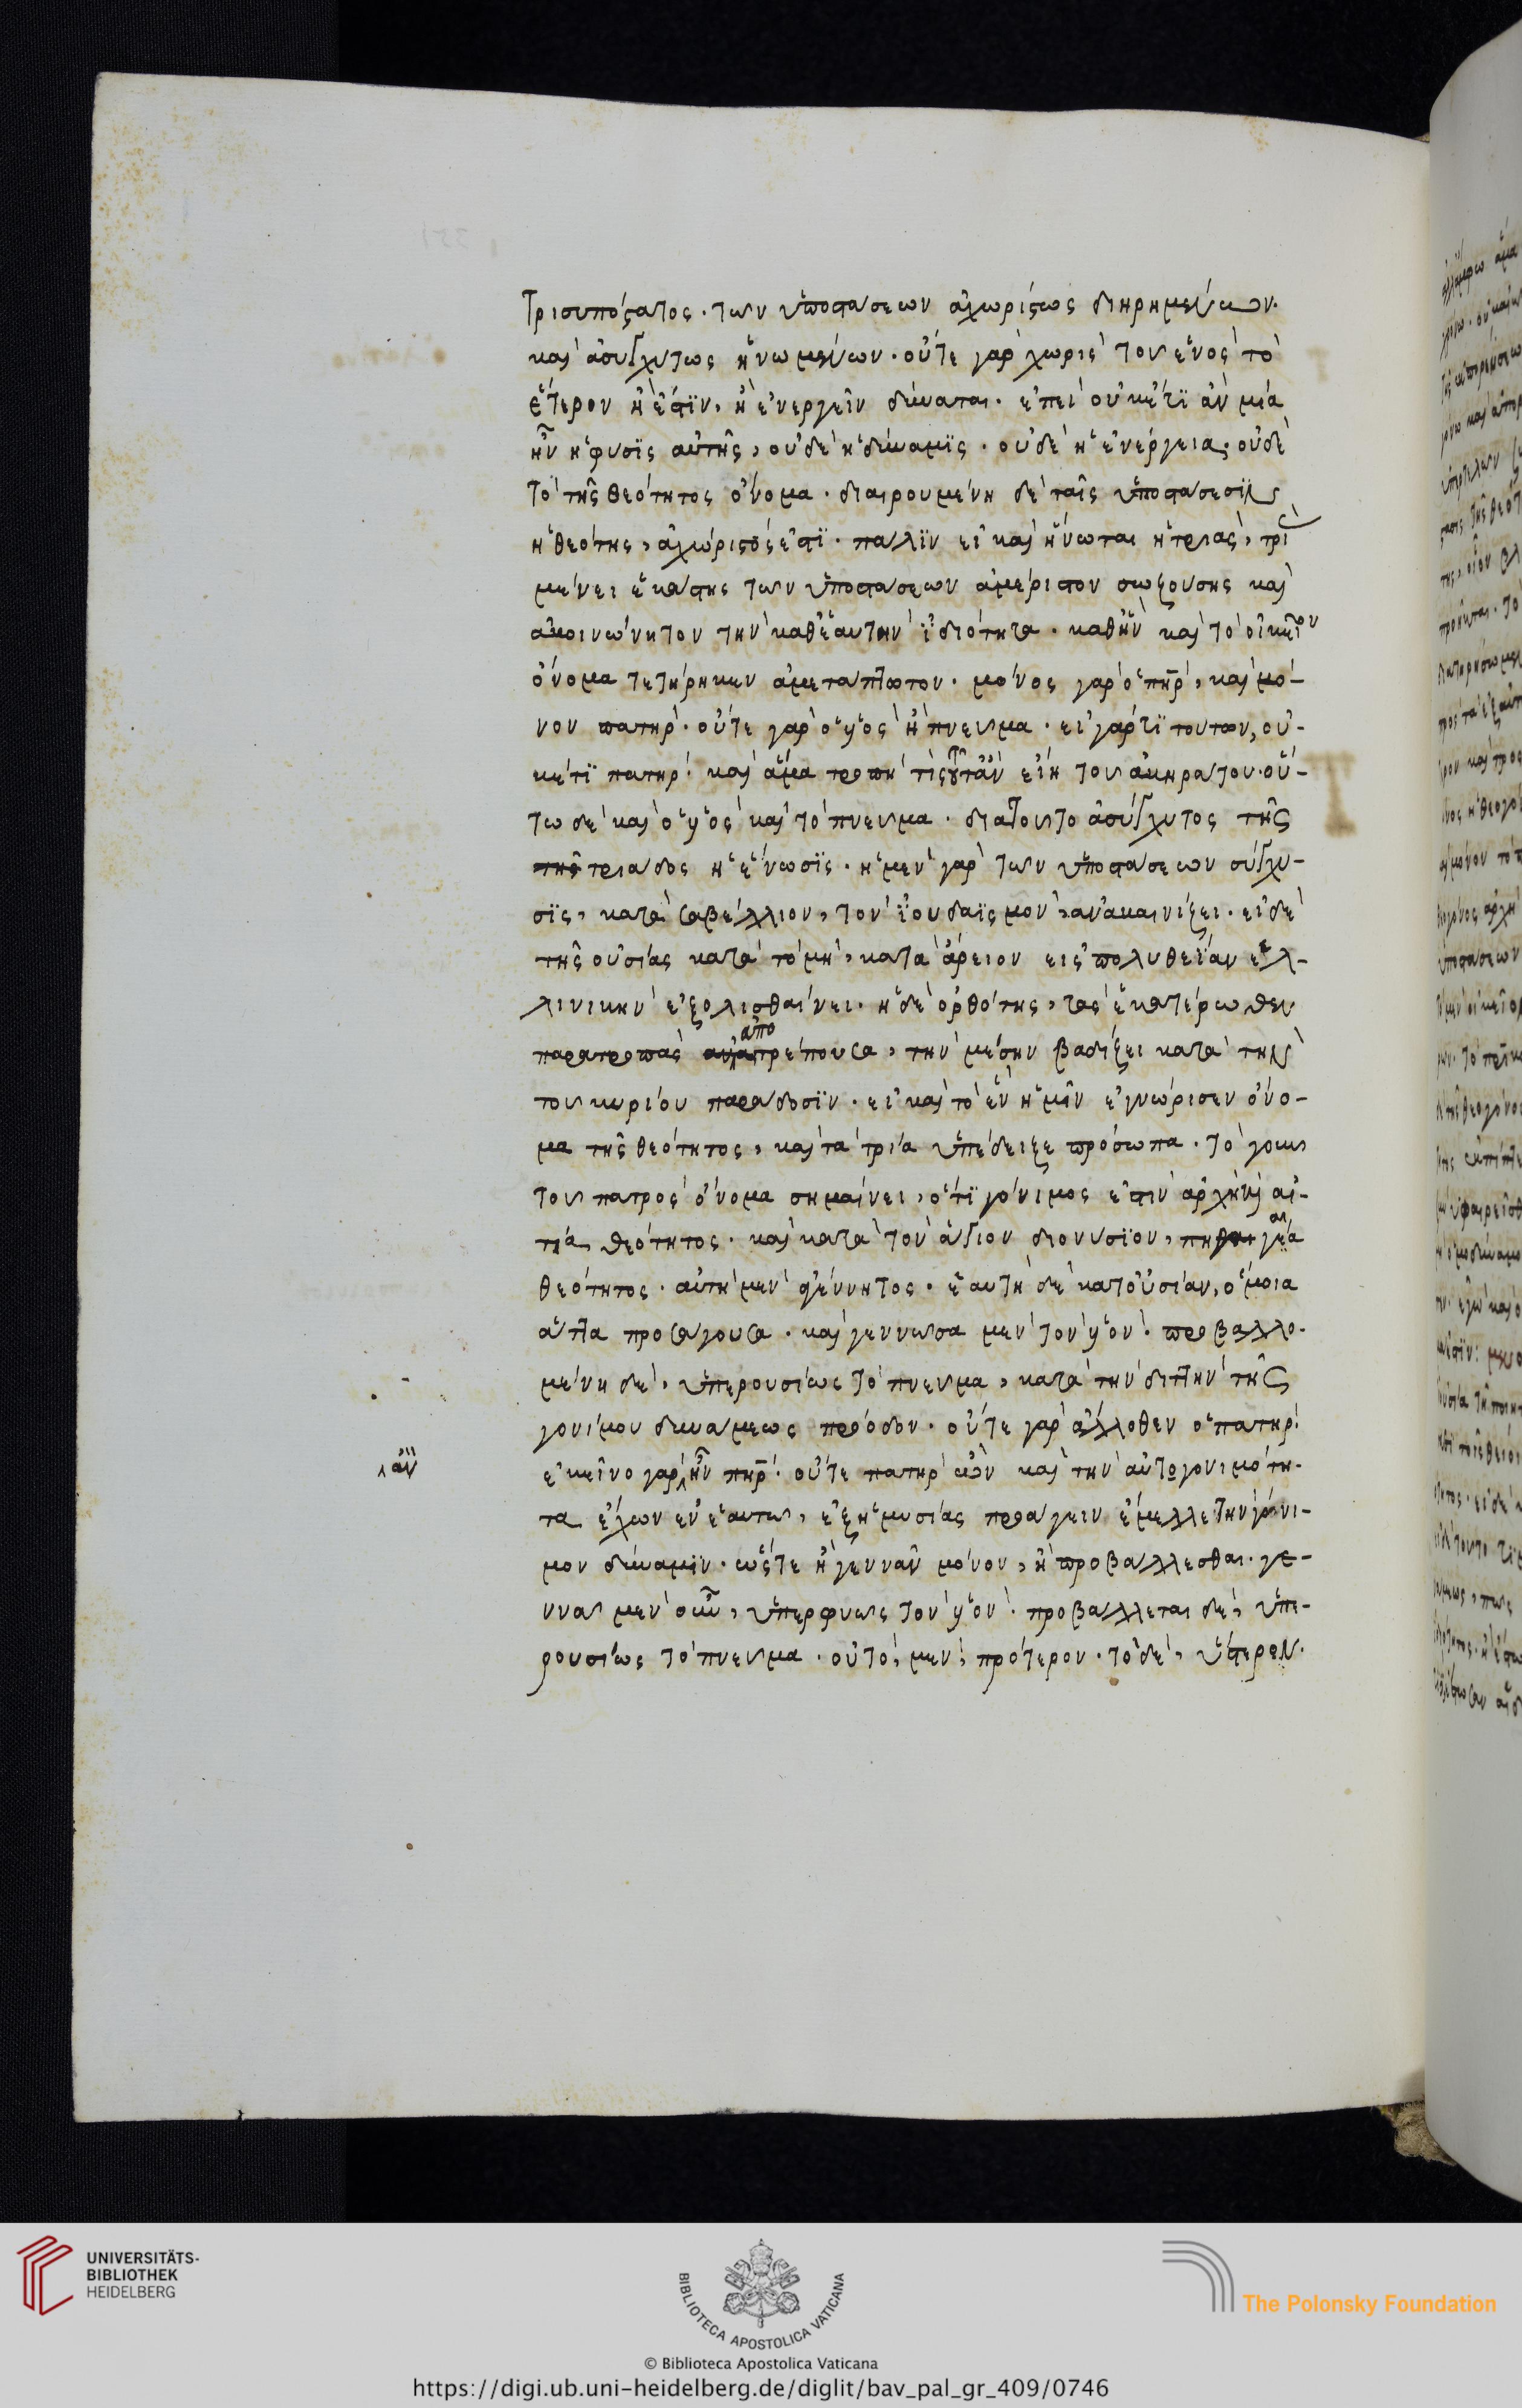 τρισυπόστατος· των ὑποστάσεων ἀχωρίστως διῃρημένων·
καὶ ἀσυγχύτως ἡνωμένων· οὔτε γὰρ χωρὶς τοῦ ἑνὸς τὸ
ἕτερον ἢ ἐστϊν, ἢ ἐνεργεῖν δύναται· ἐπεὶ οὐκέτϊ ἂν μία
ἦν ἡ φύσϊς αὐτῆς, οὐδὲ ἡ δύναμϊς· οὐδὲ ἡ ἐνέργεια· οὐδὲ
τὸ τῆς θεότητος ὄνομα· διαιρουμένη δὲ ταῖς ὑποστάσεσϊν
ἡ θεότης, ἀχώριστός ἐστϊ· πάλϊν εἰ καὶ ἥνωται ἡ τριὰς, τρὶ
μένει ἑκάστης των ὑποστάσεων ἀμέριστον σωζούσης καὶ
ἀκοινώνητον τὴν καθ' ἑαυτὴν ἰδιότητα· καθ' ἣν καὶ τὸ οἰκεῖον
ὄνομα τετήρηκεν ἀμετάπτωτον· μόνος γὰρ ὁ πηρ, καὶ μό-
νον πατὴρ· οὔτε γὰρ ὁ υἱὸς ἢ πνεῦμα· εἰ γάρ τϊ τούτων, οὐ-
κέτϊ πατὴρ· καὶ ἅμα τροπή τις οὕτ' ἂν εἴη τοῦ ἀκηράτου· οὕ-
τω δὲ καὶ ὁ υἱὸς καὶ τὸ πνεῦμα· διατοῦτο ἀσύγχυτος τῆς
τῆς τριάδος ἡ ἕνωσϊς· ἡ μὲν γὰρ των ὑποστάσεων σύγχυ-
σϊς, κατὰ σαβέλλιον, τὸν ἰουδαϊσμὸν ἀνακαινίζει· εἰ δὲ
τῆς οὐσίας κατὰ τομὴ, κατὰ ἄρειον εἰς πολυθεΐαν ἑλ-
λινικὴν ἐξολισθαίνει· ἡ δὲ ὀρθότης, τὰς ἑκατέρωθεν
παρατροπὰς ἀποτρέπουσα, τὴν μέσην βαδίζει κατὰ τὴν
τοῦ κυρίου παράδοσϊν· εἰ καὶ τὸ ἓν ἡμῖν ἐγνώρισεν ὄνο-
μα τῆς θεότητος, καὶ τὰ τρία ὑπέδειξε πρόσωπα· τὸ γοῦν
τοῦ πατρὸς ὄνομα σημαίνει, ὅτϊ γόνιμος ἐστὶν ἀρχὴ καὶ αἰ-
τία θεότητος· καὶ κατὰ τὸν ἅγιον διονύσϊον, πηγαία
θεότητος· αὐτὴ μὲν ἀγέννητος· ἑαυτῇ δὲ κατ' οὐσίαν, ὅμοια
ἅττα προάγουσα· καὶ γεννῶσα μὲν τὸν υἱὸν· προβαλλο-
μένη δὲ, ὑπερουσίως τὸ πνεῦμα, κατὰ τὴν διττὴν τῆς
γονίμου δυνάμεως πρόοδον· οὔτε γὰρ ἄλλοθεν ὁ πατὴρ·
ἐκεῖνο γὰρ ἦν πηρ· οὔτε πατὴρ ὢν καὶ τὴν αὐτογονιμότη-
τα ἔχων ἐν ἑαυτῷ, ἐξ ἡμισίας προάγειν ἔμελλε τὴν γόνι-
μον δύναμϊν· ὥστε ἢ γεννᾶν μόνον, ἢ προβάλλεσθαι· γε-
ννᾷ μὲν οὖν, ὑπερφυῶς τὸν υἱὸν· προβάλλεται δὲ, ὑπε-
ρουσίως τὸ πνεῦμα· οὐ τὸ, μὲν, πρότερον· τὸ δὲ, ὕστερον·
ἂν
UNIVERSITÄTS-
BIBLIOTHEK
HEIDELBERG
BIBLIOTECA APOSTOLICA VATICANA
The Polonsky Foundation
© Biblioteca Apostolica Vaticana
https://digi.ub.uni-heidelberg.de/diglit/bav_pal_gr_409/0746